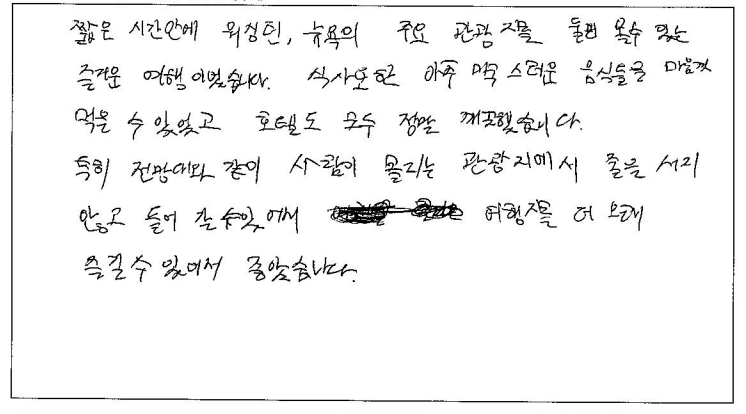 짧은 시간안에 워싱턴, 뉴욕의 주요 관광지를 둘러 볼수 있는
즐거운 여행이었습니다. 식사또한 아주 먹 스러운 음식들을 마음껏
먹을 수 있었고 호텔도 모두 정말 깨끗했습니다.
특히 전망대와 같이 사람이 몰리는 관광지에서 줄을 서지
않고 들어 갈 수있어서 여행지를 더 오래
즐길 수 있어서 좋았습니다.